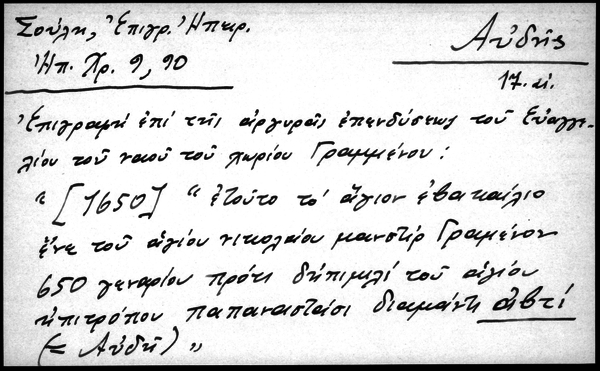 Σούλη, Ἐπιγρ. Ἠπειρ.
Ἠπ. Χρ. 9, 90
Αὐδῆς
17. αἰ.
Ἐπιγραφή ἐπί τῆς ἀργυρᾶς ἐπενδύσεως τοῦ Εὐαγγε-
λίου τοῦ ναοῦ τοῦ χωρίου Γραμμένου:
"[1650] "ἐτοῦτο τό ἅγιον ἐβακαίλιο
ἔνε τοῦ ἁγίου νικολαίου μανστίρ Γραμένον
650 γεναρίου πρότι δηπιμιλί τοῦ ἁγίου
ηπιτρόπου παπαναστάσι διαμάντι ἀβτί
(= Αὐδῆ)"